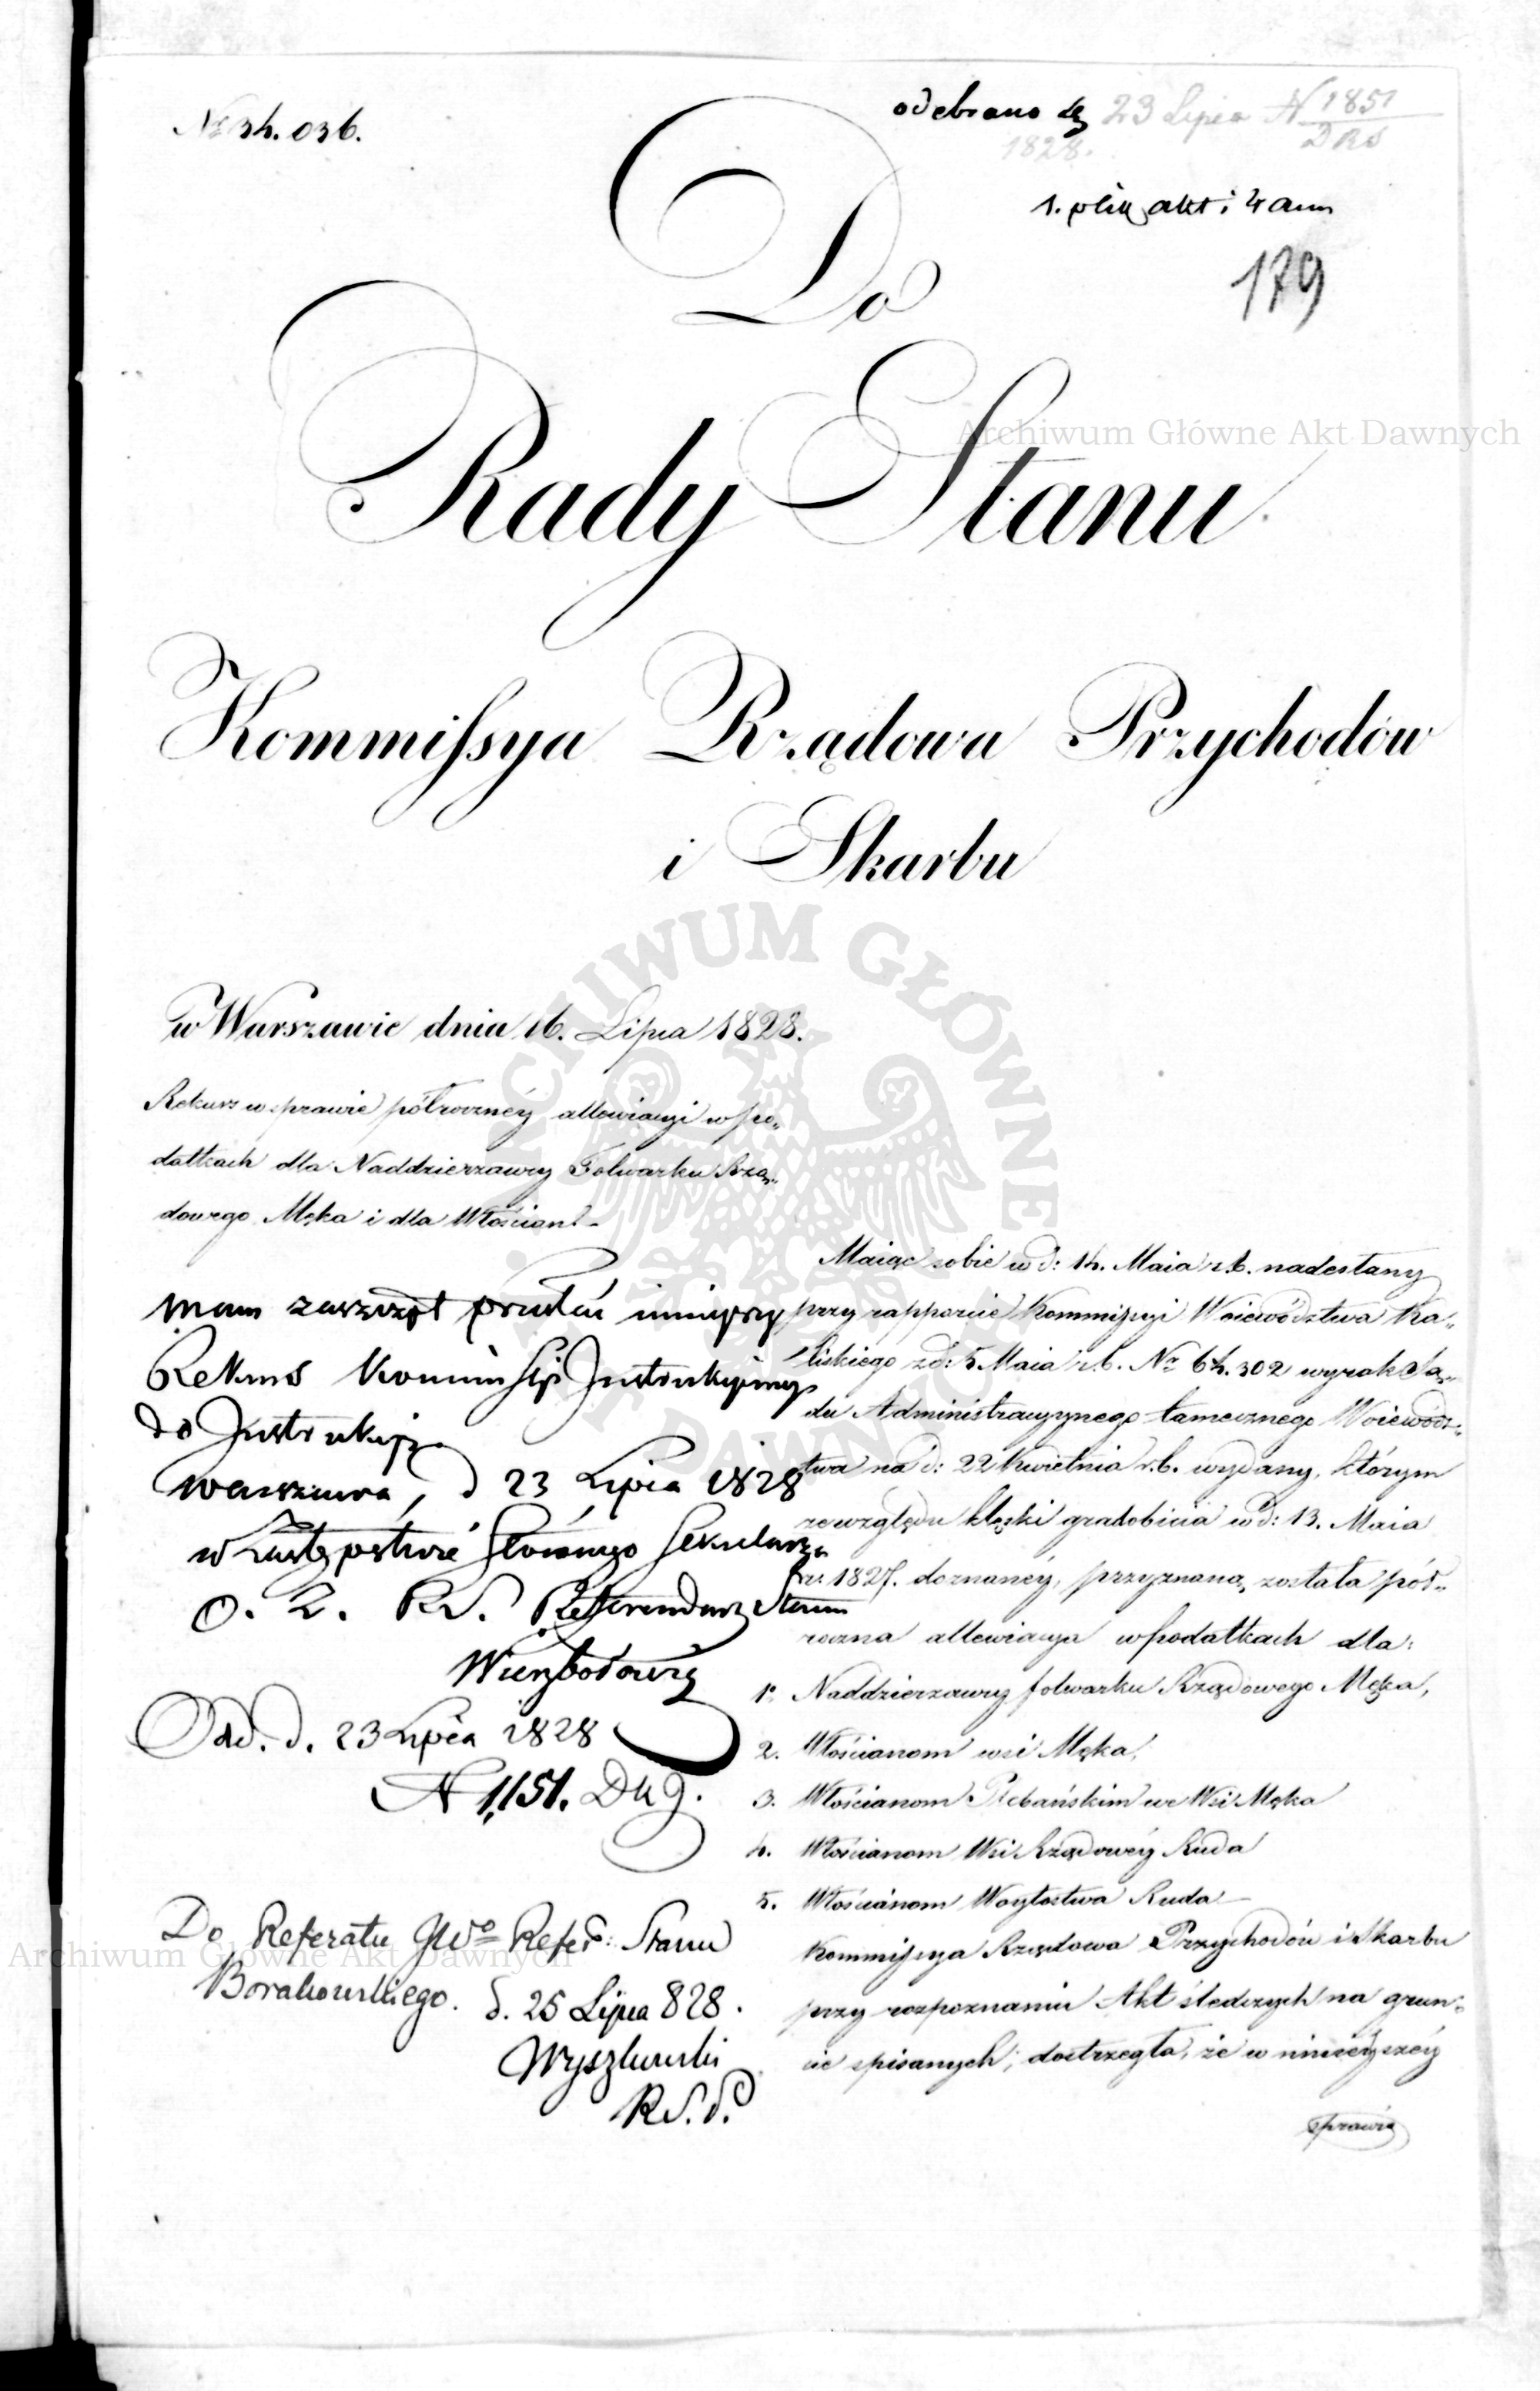 No 34.036.
odebrano d. 23 Lipca N 1851
1828. DRS
1. plik akt i 4 ann
179
Do
Rady Stanu
Archiwum Główne Akt Dawnych
Kommissya Rządowa Przychodów
i Skarbu
ARCHIWUM GŁÓWNE AKT DAWNYCH
w Warszawie dnia 16. Lipca 1828.
Rekurs w sprawie półroczney allewiacyi w po„
datkach dla Naddzierzawcy Folwarku Rzą„
dowego Męka i dla Włościan
Mam zaszczyt przesłać ninieyszy
Rekurs Kommissyi Instrukcyiney
do Instrukcyi
Warszawa, d 23 Lipca 1828
w Zastępstwie Głównego Sekretarza
O. Z. RS. Referendarz Stanu
Wierzbołowicz
Odd. d. 23 Lipca 1828
N 1,151.
Do Referatu JWo Refer: Stanu
Borakowskiego. d. 25 Lipca 828.
Wyszkowski
R.S.S.
Maiąc sobie w d: 14. Maia r.b. nadesłany
przy rapporcie Kommissyi Woiewództwa Ka„
liskiego z d: 5 Maia r.b. No 64.302 wyrok Są„
du Administracyynego tamecznego Woiewódz„
twa na d: 22 Kwietnia r.b. wydany, którym
ze względu klęski gradobicia w d: 13. Maia
r. 1827. doznaney, przyznaną została pół„
roczna allewiacya w podatkach dla:
1. Naddzierzawcy folwarku Rządowego Męka,
2. Włościanom wsi Męka,
3. Włościanom Plebańskim we Wsi Męka
4. Włościanom Wsi Rządowéy Ruda
5. Włościanom Woytostwa Ruda
Kommissya Rządowa Przychodów i Skarbu
przy rozpoznaniu Akt śledczych na grun„
cie spisanych, dostrzegła, że w ninieyszéy
sprawie
Archiwum Główne Akt Dawnych